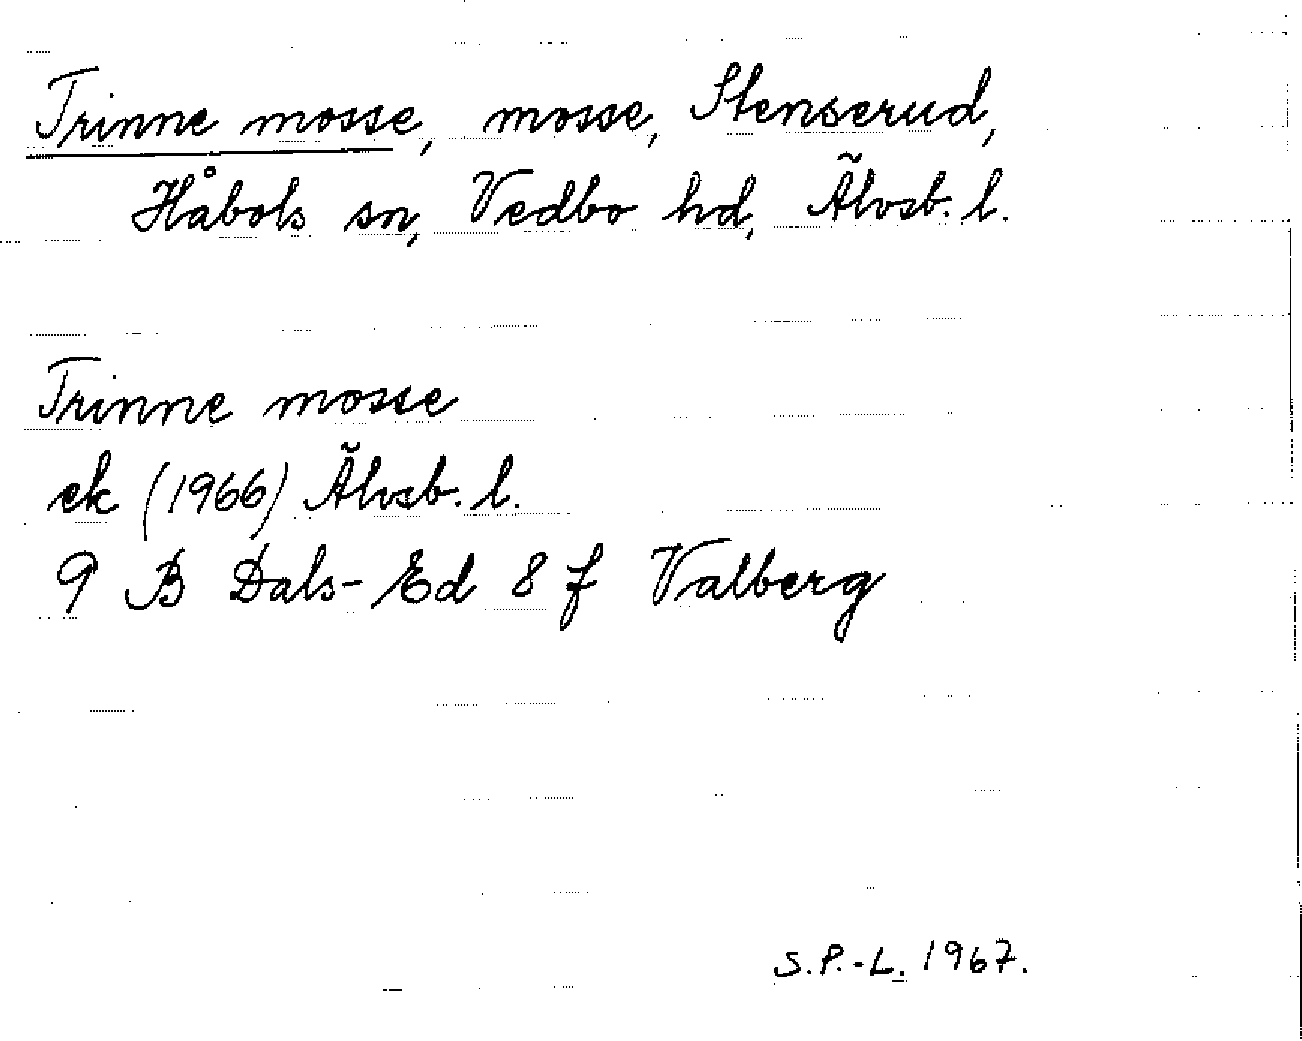 Trinne mosse, mosse, Stenserud,
Håbols sn, Vedbo hd, Älvsb. l.
Trinne mosse
ek (1966) Älvsb. l.
9 B Dals-Ed 8 f Valberg
S.P.-L. 1967.